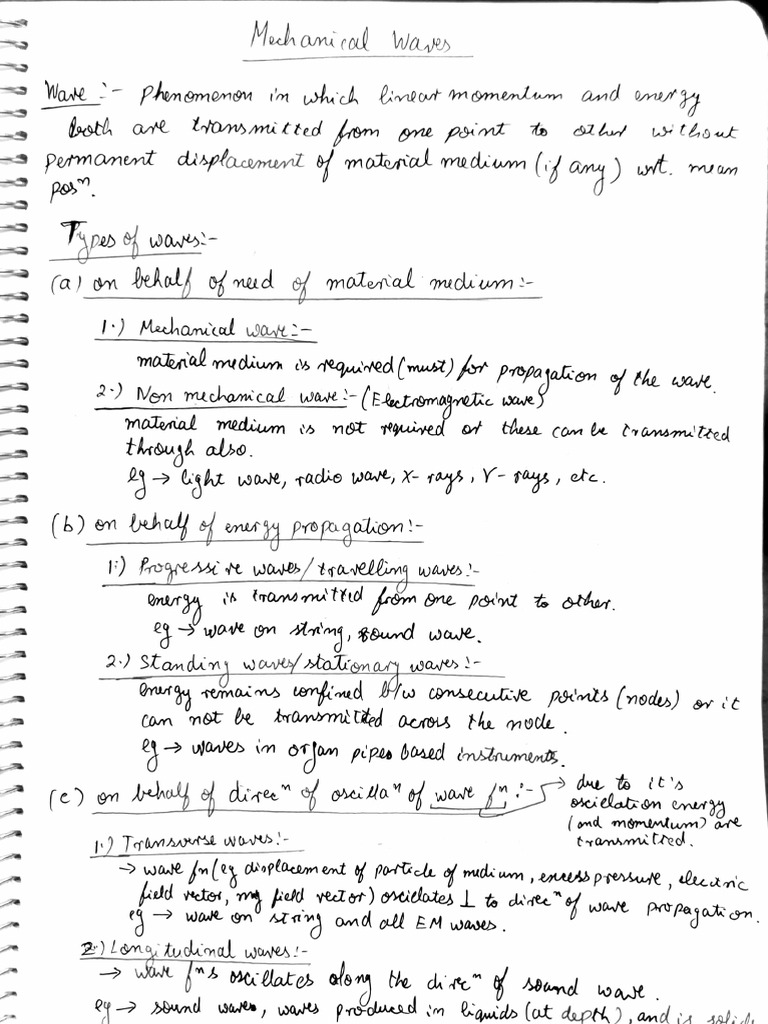 Mechanical Waves
Wave :- Phenomenon in which linear momentum and energy
both are transmitted from one point to other without
permanent displacement of material medium (if any) wrt. mean
posⁿ.
Types of waves:-
(a) on behalf of need of material medium:-
1.) Mechanical wave:-
material medium is required (must) for propagation of the wave.
2.) Non mechanical wave:- (Electromagnetic wave)
material medium is not required or these can be transmitted
through also.
eg → light wave, radio wave, X-rays, γ-rays, etc.
(b) on behalf of energy propagation:-
1.) Progressive waves/travelling waves:-
energy is transmitted from one point to other.
eg → wave on string, sound wave.
2.) Standing waves/stationary waves:-
energy remains confined b/w consecutive points (nodes) or it
can not be transmitted across the node.
eg → waves in organ pipes based instruments.
(c) on behalf of direcⁿ of oscillaⁿ of wave fⁿ :-
due to it's
oscillation energy
(and momentum) are
transmitted.
1.) Transverse waves:-
→ wave fn (eg displacement of particle of medium, excess pressure, electric
field vector, mg field vector) oscillates ⊥ to direcⁿ of wave propagation.
eg → wave on string and all EM waves.
2.) Longitudinal waves:-
→ wave fⁿs oscillates along the direcⁿ of sound wave.
eg → sound waves, waves produced in liquids (at depth), and is solids